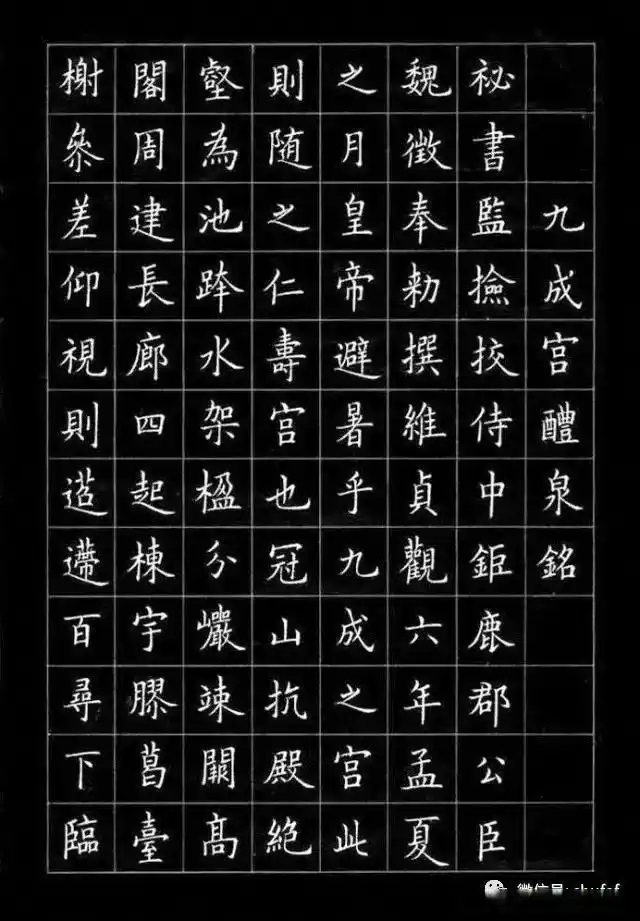 九成宫醴泉銘
祕書監撿挍侍中鉅鹿郡公臣
魏徵奉勑撰維貞觀六年孟夏
之月皇帝避暑乎九成之宫此
則随之仁壽宫也冠山抗殿絶
壑為池跨水架楹分巗竦闕髙
閣周建長廊四起棟宇膠葛臺
榭叅差仰視則迢遰百尋下臨
微信号: